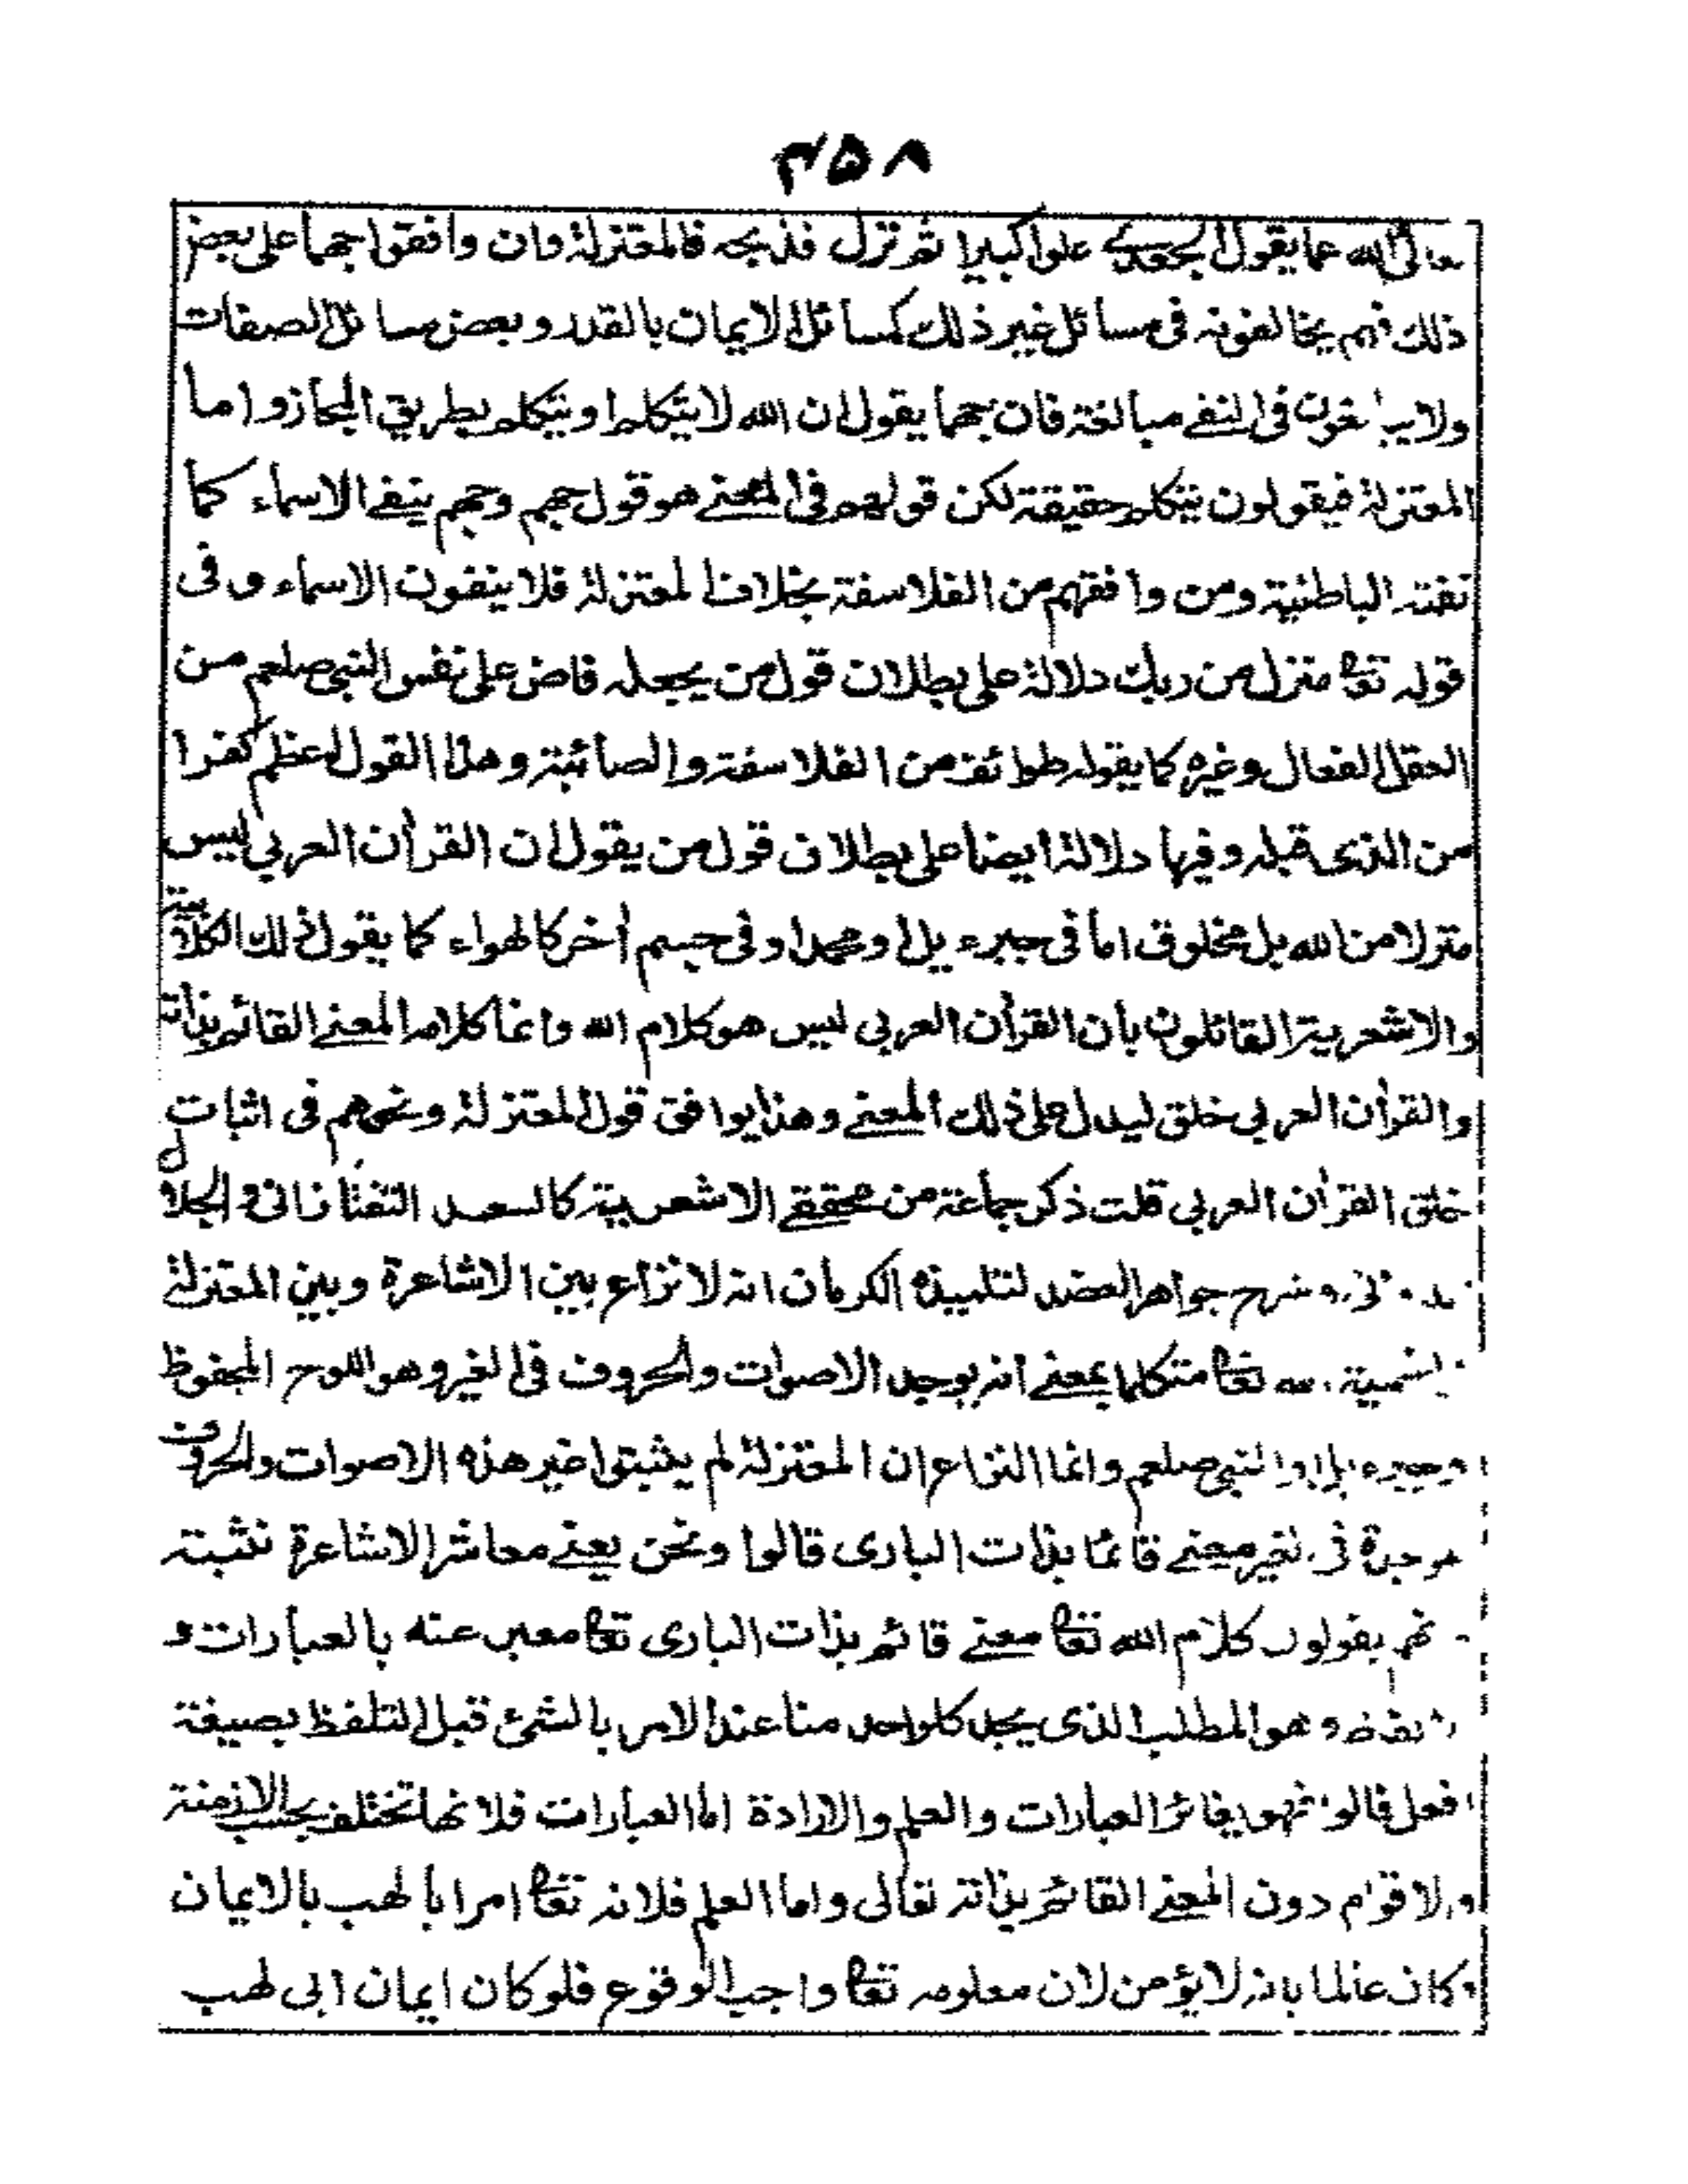 ۴۵۸
تعالى الله عما يقول الجعد علوا كبيرا ثم نزل فذبحه فالمعتزلة وان وافقوا جهما على بعض
ذلك فهم يخالفونه فى مسائل غير ذلك كمسائل الايمان بالقدر وبعض مسائل الصفات
ولا يبالغون فى النفى مبالغته فان جهما يقول ان الله لا يتكلم او يتكلم بطريق المجاز واما
المعتزلة فيقولون يتكلم حقيقة لكن قولهم فى المعنى هو قول جهم وجهم ينفى الاسماء كما
نفته الباطنية ومن وافقهم من الفلاسفة بخلاف المعتزلة فلا ينفون الاسماء وفى
قوله تعا منزل من ربك دلالة على بطلان قول من يجعله فاض على نفس النبى صلعم من
العقل الفعال وغيره كما يقوله طوائف من الفلاسفة والصائبة وهذا القول اعظم كفرا
من الذى قبله وفيها دلالة ايضا على بطلان قول من يقول ان القرأن العربي ليس
منزلا من الله بل مخلوق اما فى جبرءيل او محمد او فى جسم أخر كالهواء كما يقول ذلك الكلابية
والاشعرية القائلون بأن القرأن العربى ليس هو كلام الله وانما كلامه المعنى القائم بذاته
والقرأن العربي خلق ليدل على ذلك المعنى وهذا يوافق قول المعتزلة ونحوهم فى اثبات
خلق القرأن العربي قلت ذكر جماعة من محققى الاشعرية كالسعد التفتازانى والجلال
الدوانى وشرح جواهر العضد لتلميذه الكرمانى انه لا نزاع بين الاشاعرة وبين المعتزلة
تسمية الله تعا متكلما بمعنى انه يوجد الاصوات والحروف فى الغير وهو اللوح المحفوظ
وجبرءيل والنبى صلعم وانما النزاع ان المعتزلة لم يثبتوا غير هذه الاصوات والحروف
موجدة فى الغير معنى قائما بذات البارى قالوا ونحن يعنى معاشر الاشاعرة نثبته
فهم يقولون كلام الله تعا معنى قائم بذات البارى تعا معبر عنه بالعبارات و
الالفاظ وهو المطلب الذى يجد كل واحد منا عند الامر بالشئ قبل التلفظ بصيغة
افعل قالوا فهو يغائر العبارات والعلم والارادة اما العبارات فلانها تختلف بحسب الازمنة
والاقوام دون المعنى القائم بذاته تعالى واما العلم فلانه تعا امر ابا لهب بالايمان
وكان عالما بانه لا يؤمن لان معلومه تعا واجب الوقوع فلو كان ايمان ابى لهب